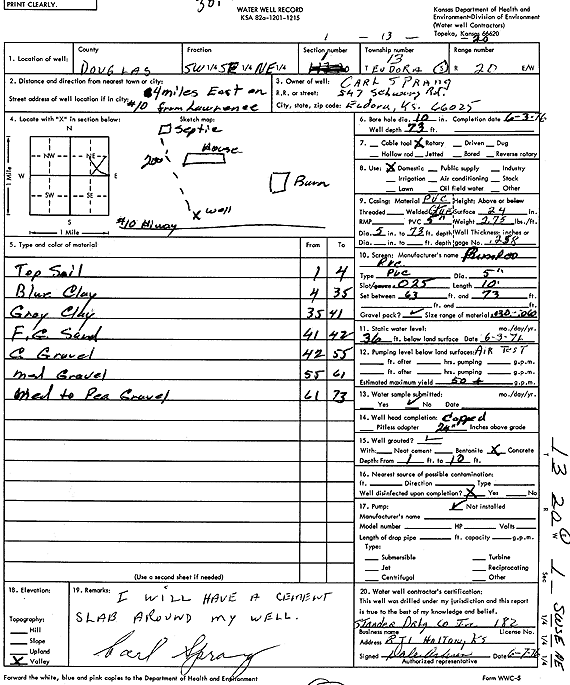 PRINT CLEARLY.
WATER WELL RECORD
KSA 82a-1201-1215
Kansas Department of Health and
Environment-Division of Environment
(Water well Contractors)
Topeka, Kansas 66620
1 - 13 - 20
1. Location of well:
County
DOUGLAS
Fraction
SW 1/4 SE 1/4 NE 1/4
Section number
Township number
13
T EUDORA S
Range number
R 20 E/W
2. Distance and direction from nearest town or city: 4 miles East on
Street address of well location if in city: #10 from Lawrence
3. Owner of well: CARL SPRANG
R.R. or street: 547 Schwarz Rd.
City, state, zip code: Eudora, KS. 66025
4. Locate with "X" in section below:
N
NW
NE
W
E
SW
SE
S
1 Mile
1 Mile
Sketch map:
Septic
House
200'
Barn
X well
#10 Hiway
6. Bore hole dia. 10 in. Completion date 6-3-76
Well depth 73 ft.
7. Cable tool X Rotary Driven Dug
Hollow rod Jetted Bored Reverse rotary
8. Use: X Domestic Public supply Industry
Irrigation Air conditioning Stock
Lawn Oil field water Other
9. Casing: Material PVC Height: Above or below
Threaded Welded Glue Surface 24 in.
RMP PVC 5" Weight 2.75 lbs./ft.
Dia. 5 in. to 73 ft. depth Wall Thickness: inches or
Dia. in. to ft. depth gage No. .258
10. Screen: Manufacturer's name
PVC
Type PVC Dia. 5"
Slot/gauze .025 Length 10'
Set between 63 ft. and 73 ft.
ft. and ft.
Gravel pack? ✓ Size range of material .030-.060
11. Static water level: mo./day/yr.
36 ft. below land surface Date 6-3-76
12. Pumping level below land surface: AIR TEST
ft. after hrs. pumping g.p.m.
ft. after hrs. pumping g.p.m.
Estimated maximum yield 50 + g.p.m.
13. Water sample submitted: mo./day/yr.
Yes ✓ No Date
14. Well head completion: Capped
Pitless adapter 24" Inches above grade
15. Well grouted? ✓
With: Neat cement Bentonite X Concrete
Depth From 1 ft. to 10 ft.
16. Nearest source of possible contamination:
ft. Direction Type
Well disinfected upon completion? X Yes No
17. Pump: ✓ Not installed
Manufacturer's name
Model number HP Volts
Length of drop pipe ft. capacity g.p.m.
Type:
Submersible Turbine
Jet Reciprocating
Centrifugal Other
5. Type and color of material From To
Top Soil 1 4
Blue Clay 4 35
Gray Clay 35 41
F.G. Sand 41 42
C. Gravel 42 55
med Gravel 55 61
Med to Pea Gravel 61 73
(Use a second sheet if needed)
18. Elevation:
Topography:
Hill
Slope
Upland
X Valley
19. Remarks: I WILL HAVE A CEMENT
SLAB AROUND MY WELL.
Carl Sprang
20. Water well contractor's certification:
This well was drilled under my jurisdiction and this report
is true to the best of my knowledge and belief.
Strader Drlg Co Inc 182
Business name License No.
Address RT1 Holton, Ks
Signed Date 6-7-76
Authorized representative
T 13 R 20 E W Sec 1 SW SE NE
1/4 1/4 1/4
Forward the white, blue and pink copies to the Department of Health and Environment
Form WWC-5